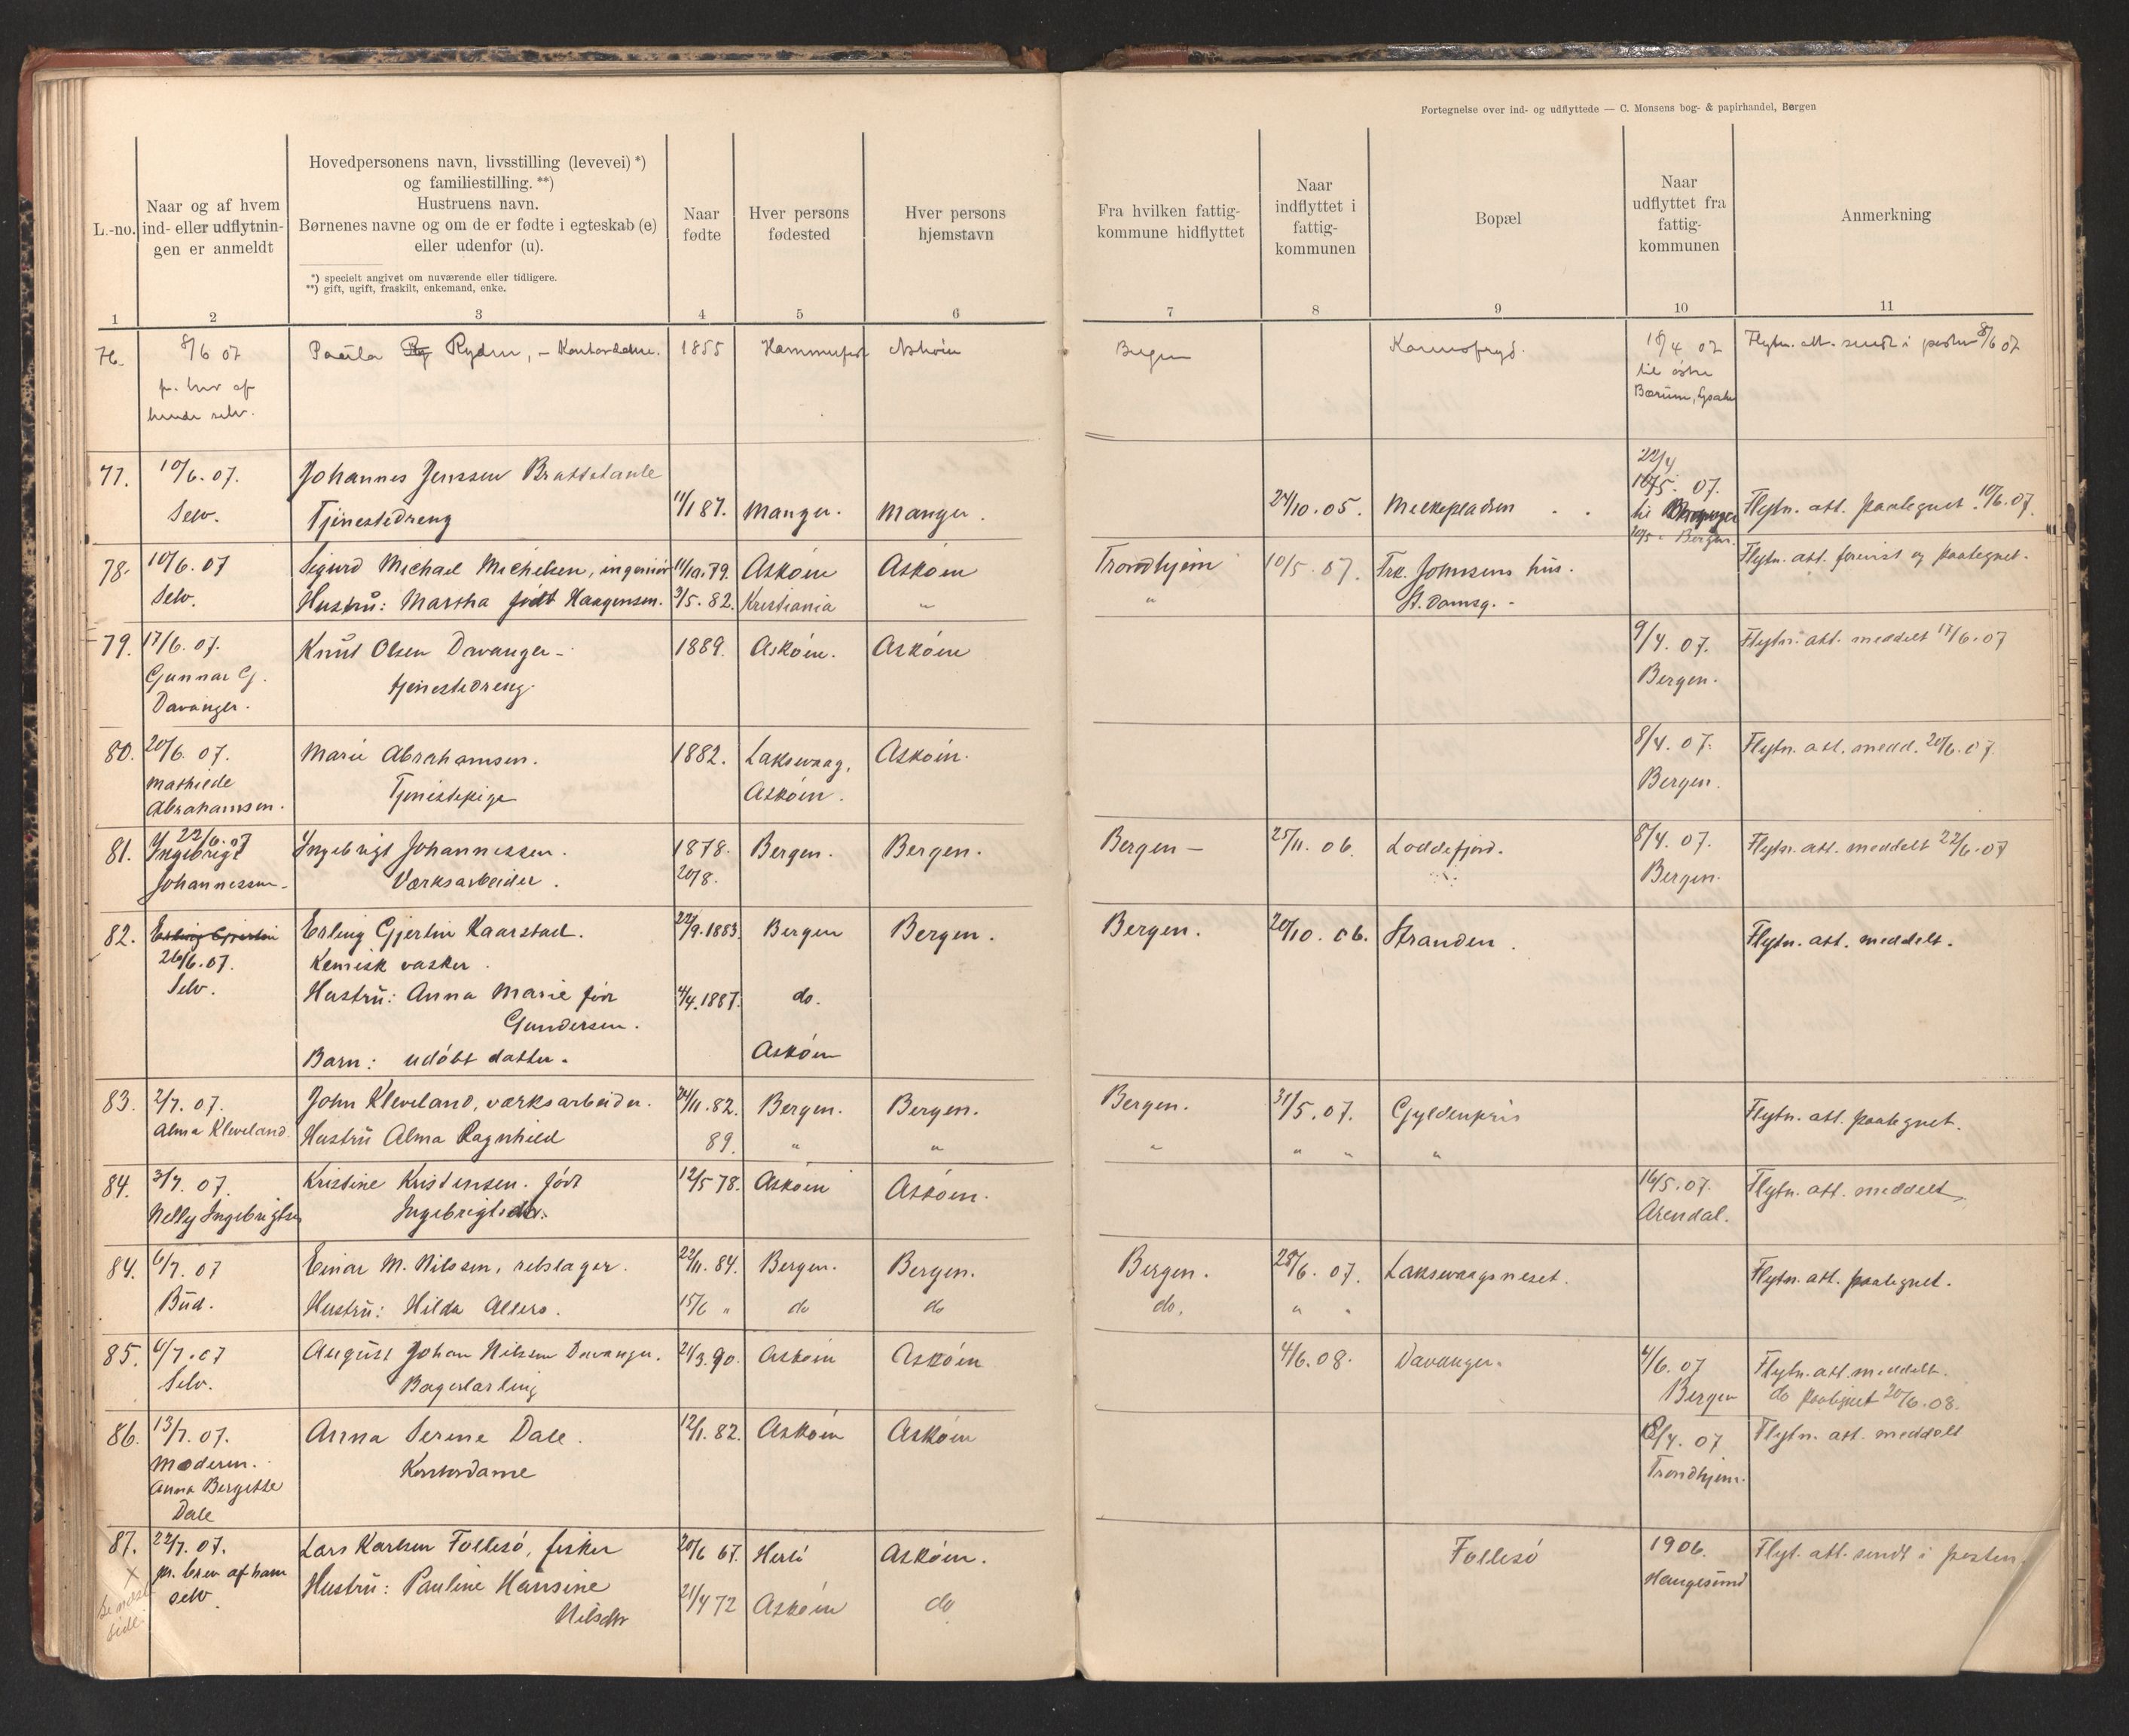 Fortegnelse over ind- og udflyttede — C. Monsens bog- & papirhandel, Bergen
L.-no.
Naar og af hvem
ind- eller udflytnin-
gen er anmeldt
Hovedpersonens navn, livsstilling (levevei) *)
og familiestilling. **)
Hustruens navn.
Børnenes navne og om de er fødte i egteskab (e)
eller udenfor (u).
*) specielt angivet om nuværende eller tidligere.
**) gift, ugift, fraskilt, enkemand, enke.
Naar
fødte
Hver persons
fødested
Hver persons
hjemstavn
Fra hvilken fattig-
kommune hidflyttet
Naar
indflyttet i
fattig-
kommunen
Bopæl
Naar
udflyttet fra
fattig-
kommunen
Anmerkning
1 2 3 4 5 6 7 8 9 10 11
76. 8/6 07 Paula Ryden, - Kontordame. 1855 Hammerfest Askøen Bergen 18/4 07 Flytn. att. sendt i posten 8/6 07
p. brev af til østre
hende selv. Bærum,
77. 10/6. 07. Johannes Jenssen Brattetaule 22/4
Selv. Tjenestedreng 11/1 87. Manger. Manger. 24/10. 05. 07. Flytn. att. paategnet. 10/6. 07.
til
Bergen.
78. 10/6. 07 Sigurd Michael Michelsen, ingeniør 11/10. 79. Askøen Askøen Trondhjem 10/5. 07. Frk. Johnsens hus. Flytn. att. forevist og paategnet.
Selv. Hustru: Martha født Haagensen. 3/5. 82. Kristiania " " St. Damsg. -
79. 17/6. 07. Knut Olsen Davanger - 1889. Askøen. Askøen 9/4. 07. Flytn. att. meddelt 17/6. 07
Gunnar G. tjenestedreng. Bergen.
Davanger.
80. 20/6. 07. Marie Abrahamsen. 1882. Laksevaag, Askøen. 8/4. 07. Flytn. att. medd. 20/6. 07.
Mathilde Tjenestepige Askøen. Bergen.
Abrahamsen.
81. 22/6. 07 Ingebrigt Johannessen. 1878. Bergen. Bergen. Bergen - 25/11. 06. Loddefjord. 8/4. 07. Flytn. att. meddelt 22/6. 07
Ingebrigt Værksarbeider. 20/8. Bergen.
Johannessen.
82. Erling Gjertin Erling Gjertin Kaarstad. 22/9. 1883. Bergen Bergen. Bergen. 20/10. 06. Stranden. Flytn. att. meddelt.
26/6. 07. Kemisk vasker.
Selv. Hustru: Anna Marie født 4/4. 1887. do.
Gundersen.
Barn: udøbt datter. Askøen
83. 2/7. 07. John Kleveland, værksarbeider. 24/11. 82. Bergen. Bergen. Bergen. 31/5. 07. Gyldenpris Flytn. att. paategnet.
Alma Kleveland Hustru Alma Ragnhild 89. " " " " " "
84. 3/7. 07. Kristine Kristensen. født 12/5 78. Askøen Askøen. 16/5. 07. Flytn. att. meddelt
Nelly Ingebrigtsen Ingebrigtsdtr. Arendal.
84. 6/7. 07 Einar M. Nilssen, rebslager. 22/11. 84. Bergen. Bergen. Bergen. 28/6. 07. Laksevaagsneset. Flytn. att. paategnet.
Bud. Hustru: Hilda Allers. 15/6 " do do do. " "
85. 6/7. 07 August Johan Nilsen Davanger. 21/3. 90. Askøen Askøen 4/6. 08. Davanger. 4/6. 07 Flytn. att. meddelt.
Selv. Bagerlærling Bergen do paategnet 20/6. 08.
86. 13/7. 07. Anna Serine Dale. 12/1. 82. Askøen Askøen 07 Flytn. att. meddelt
Moderen. Kontordame Trondhjem.
Anna Bergitte
Dale
87. 22/7. 07. Lars Karlsen Follesø, fisker 20/6 67. Herlø Askøen. Follesø 1906. Flyt. att. sendt i posten.
X pr. brev af ham Hustru: Pauline Hansine 21/4 72 Askøen do Haugesund
selv. Nilsdtr
se næste
side.